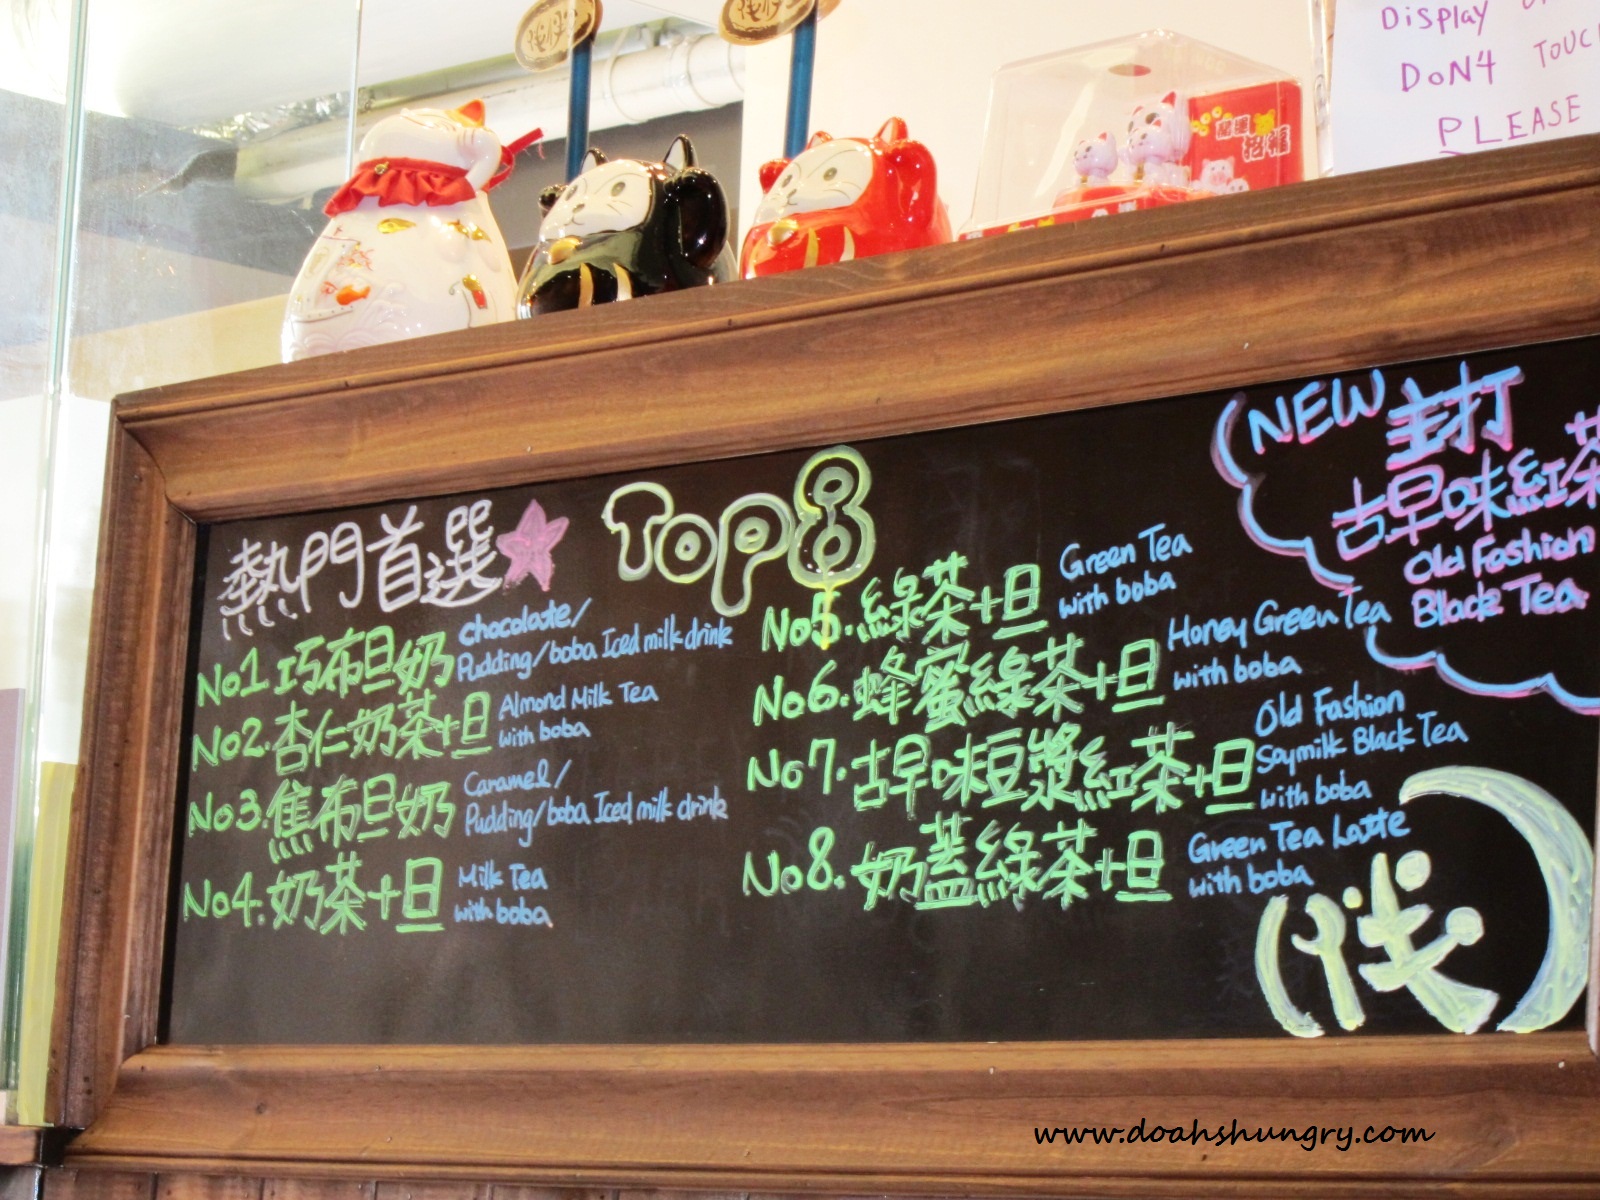 Display
DON4 TOUC
PLEASE
招福
NEW 主打
古早味紅茶
Old Fashion
Black Tea
熱門首選 Top8
No1 巧布旦奶 chocolate/
Pudding/boba Iced milk drink
No2. 杏仁奶茶+旦 Almond Milk Tea
with boba
No3. 焦布旦奶 Caramel/
Pudding/boba Iced milk drink
No4. 奶茶+旦 Milk Tea
with boba
No5. 綠茶+旦 Green Tea
with boba
No6. 蜂蜜綠茶+旦 Honey Green Tea
with boba
No7. 古早味豆漿紅茶+旦 Old Fashion
Soymilk Black Tea
with boba
No8. 奶蓋綠茶+旦 Green Tea Latte
with boba
www.doahshungry.com